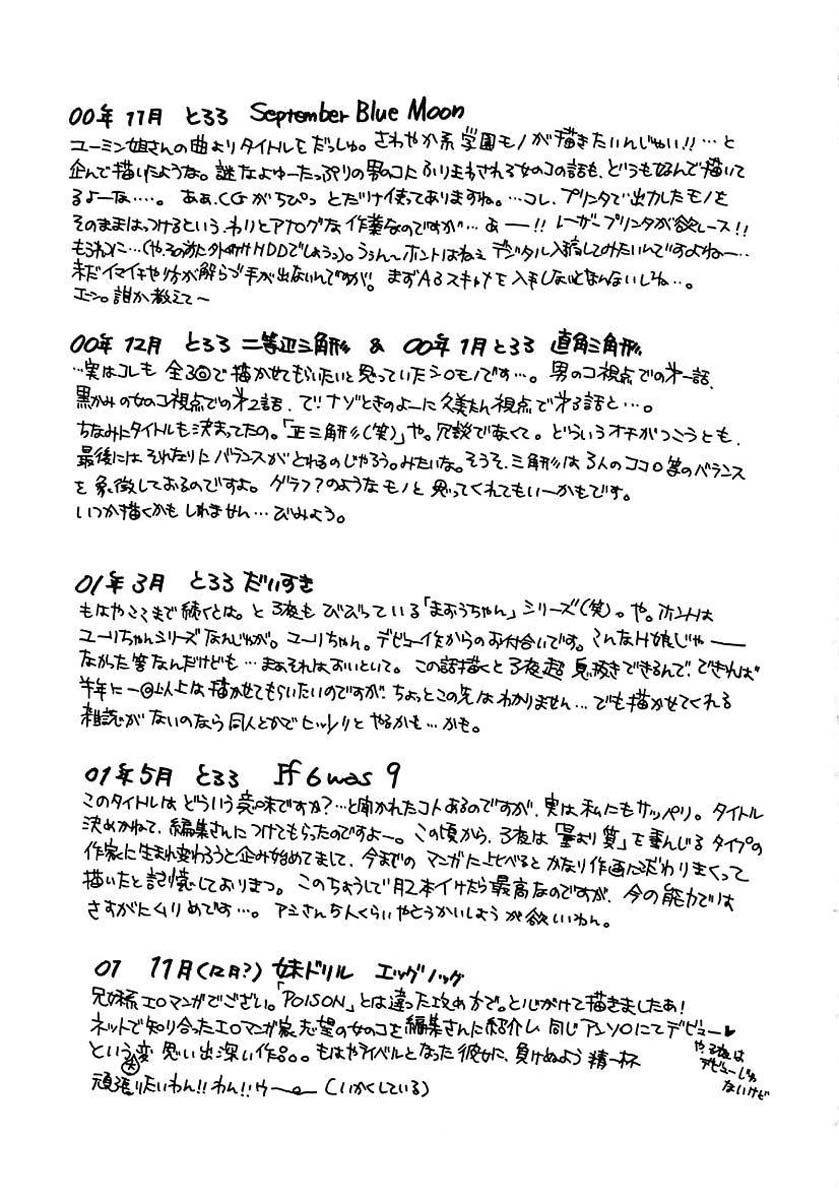 00年11月 とろろ September Blue Moon
ユーミン姐さんの曲よりタイトルをだっしゅ。さわやか系学園モノが描きたいんじゃい!!…と
企んで描いたような。謎なよゆーたっぷりの男のコにふりまわされる女のコの話も、どうもなんで描いて
るよーな…。ああ、CGがちぴっとだけ使ってありますね。…コレ、プリンタで出力したモノを
そのままはっつけるという、わりとアナログな作業なのですが…あー!!レーザープリンタが欲しース!!
(や、その前に外付けHDDでしょうっ)。ううん〜ホントはねぇデジタル入稿してみたいんですよねー…
未だイマイチやり方が解らず手が出ないんですが。まずA3スキャナを入手しないとなんないしね…。
エーン。誰か教えて〜
00年12月 とろろ 二等辺三角形 & 00年1月とろろ 直角三角形
…実はコレも全3回で描かせてもらいたいと思っていたシロモノです…。男のコ視点での第一話、
黒かみの女のコ視点での第2話、で!!ナゾときのよーに久美たん視点で第3話と…。
ちなみにタイトルも決まってたの。「正三角形(笑)」や。冗談でなくて。どういうオチがつこうとも、
最後にはそれなりにバランスがとれるのじゃろう。みたいな。そうそ、三角形は3人のココロ等のバランス
を象徴しておるのですよ。グラフ?のようなモノと思ってくれてもいーかもです。
いつか描くかもしれません…びみょう。
01年3月 とろろ だいすき
もはやここまで続くとは。と3夜もびびっている「まおうちゃん」シリーズ(笑)。や。ホントは
ユーリちゃんシリーズなんじゃが。ユーリちゃん。デビュー作からのお付合いです。こんなH娘じゃ——
なかった筈なんだけども…まぁそれはおいといて。この話描くと3夜超息抜きできるんで、できれば
半年に一回以上は描かせてもらいたいのですが、ちょっとこの先はわかりません…でも描かせてくれる
雑誌がないのなら同人とかでヒッソリとやるかも…かも。
01年5月 とろろ If 6 was 9
このタイトルはどういう意味ですか?…と聞かれたコトあるのですが、実は私にもサッパリ。タイトル
決めかねて、編集さんにつけてもらったのですよー。この頃から、3夜は「量より質」を重んじるタイプの
作家に生まれ変わろうと企み始めてまして、今までのマンガに比べるとかなり作画にこだわりまくって
描いたと記憶しておりまつ。このちょうしで月2本イけたら最高なのですが、今の能力では
さすがにムリめです…。アシさん5人くらいやとうかいしょうが欲しいわん。
01 11月(12月?) 妹ドリル エッグノッグ
兄妹系エロマンガでござい。「POISON」とは違った攻め方で。と心がけて描きましたあ!
ネットで知り合ったエロマンガ家志望の女のコを編集さんに紹介し、同じアンソロにてデビュー♥
や、3夜は
デビューじゃ
ないけど
という変(笑)思い出深い作品。。もはやライバルとなった彼女に、負けぬよう精一杯
頑張りたいわん!!わん!!ウ〜(いかくしている)